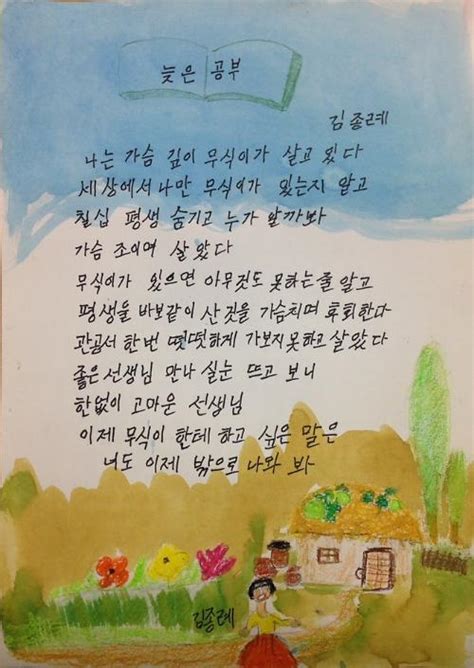 늦은 공부
김종례
나는 가슴 깊이 무식이가 살고 있다
세상에서 나만 무식이가 있는지 알고
칠십 평생 숨기고 누가 알까봐
가슴 조이며 살았다
무식이가 있으면 아무것도 못하는 줄 알고
평생을 바보같이 산 것을 가슴치며 후회한다
관공서 한번 떳떳하게 가보지 못하고 살았다
좋은 선생님 만나 실눈 뜨고 보니
한없이 고마운 선생님
이제 무식이 한테 하고 싶은 말은
너도 이제 밖으로 나와 봐
김종례